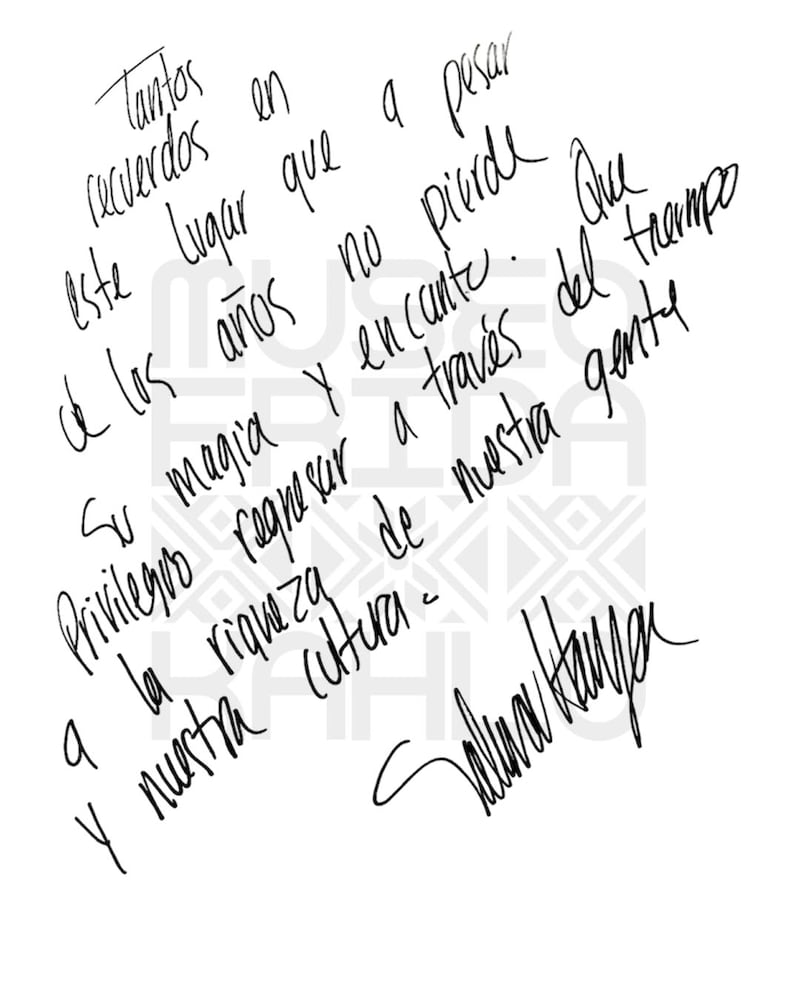 Tantos
recuerdos en
este lugar que a pesar
de los años no pierde
su magia y encanto. Que
privilegio regresar a través del tiempo
a la riqueza de nuestra gente
y nuestra cultura.
Salma Hayek
MUSEO
FRIDA
KAHLO